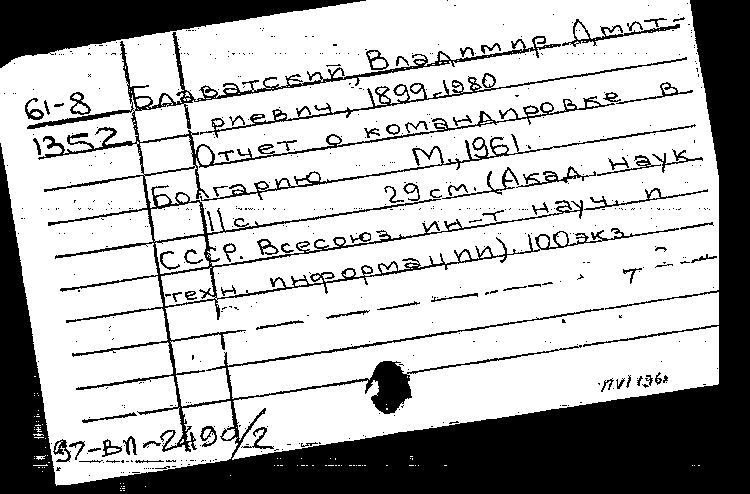 Блаватский, Владимир Дмит-
61-8 риевич, 1899-1980
1352 Отчет о командировке в
Болгарию. М., 1961.
11 с. 29 см. (Акад. наук
СССР. Всесоюз. ин-т науч. и
техн. информации). 100 экз.
97-ВП-2490/2